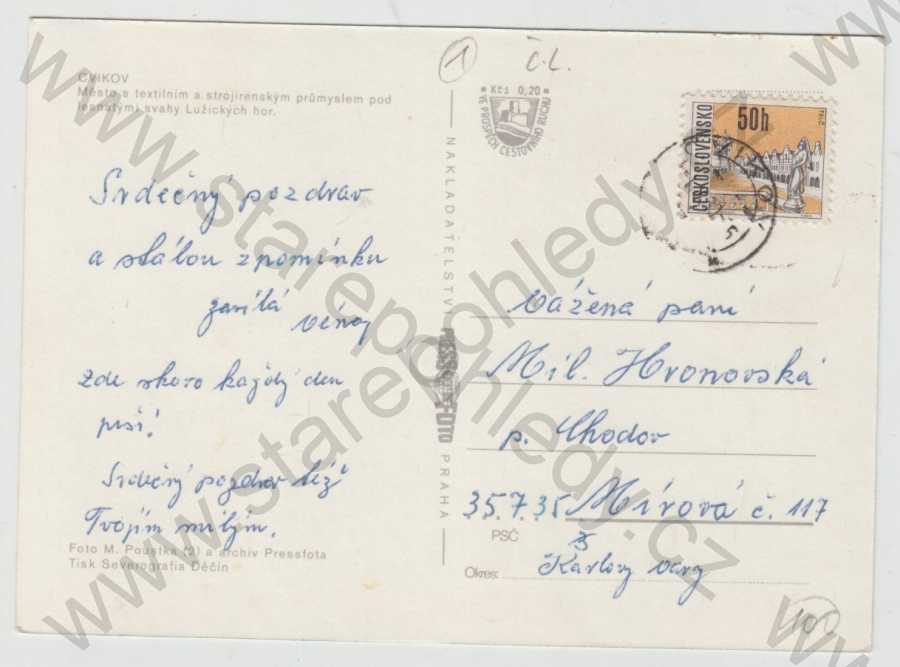 CVIKOV
Město s textilním a strojírenským průmyslem pod
lesnatými svahy Lužických hor.
1
Č.L.
Kčs 0,20
VE PROSPĚCH CESTOVNÍHO RUCHU
ČESKOSLOVENSKO
50h
Srdečný pozdrav
a stálou zpomínku
zasílá
Zde skoro každý den
prší!
Srdečný pozdrav též
Tvojím milým.
Foto M. Poustka (2) a archiv Pressfota
Tisk Severografia Děčín
NAKLADATELSTVÍ PRESSFOTO PRAHA
Vážená paní
Mil. Hronovská
p. Chodov
35.7.35 Mírová č. 117
PSČ
Okres: Karlovy vary
100
www.starepohledy.cz